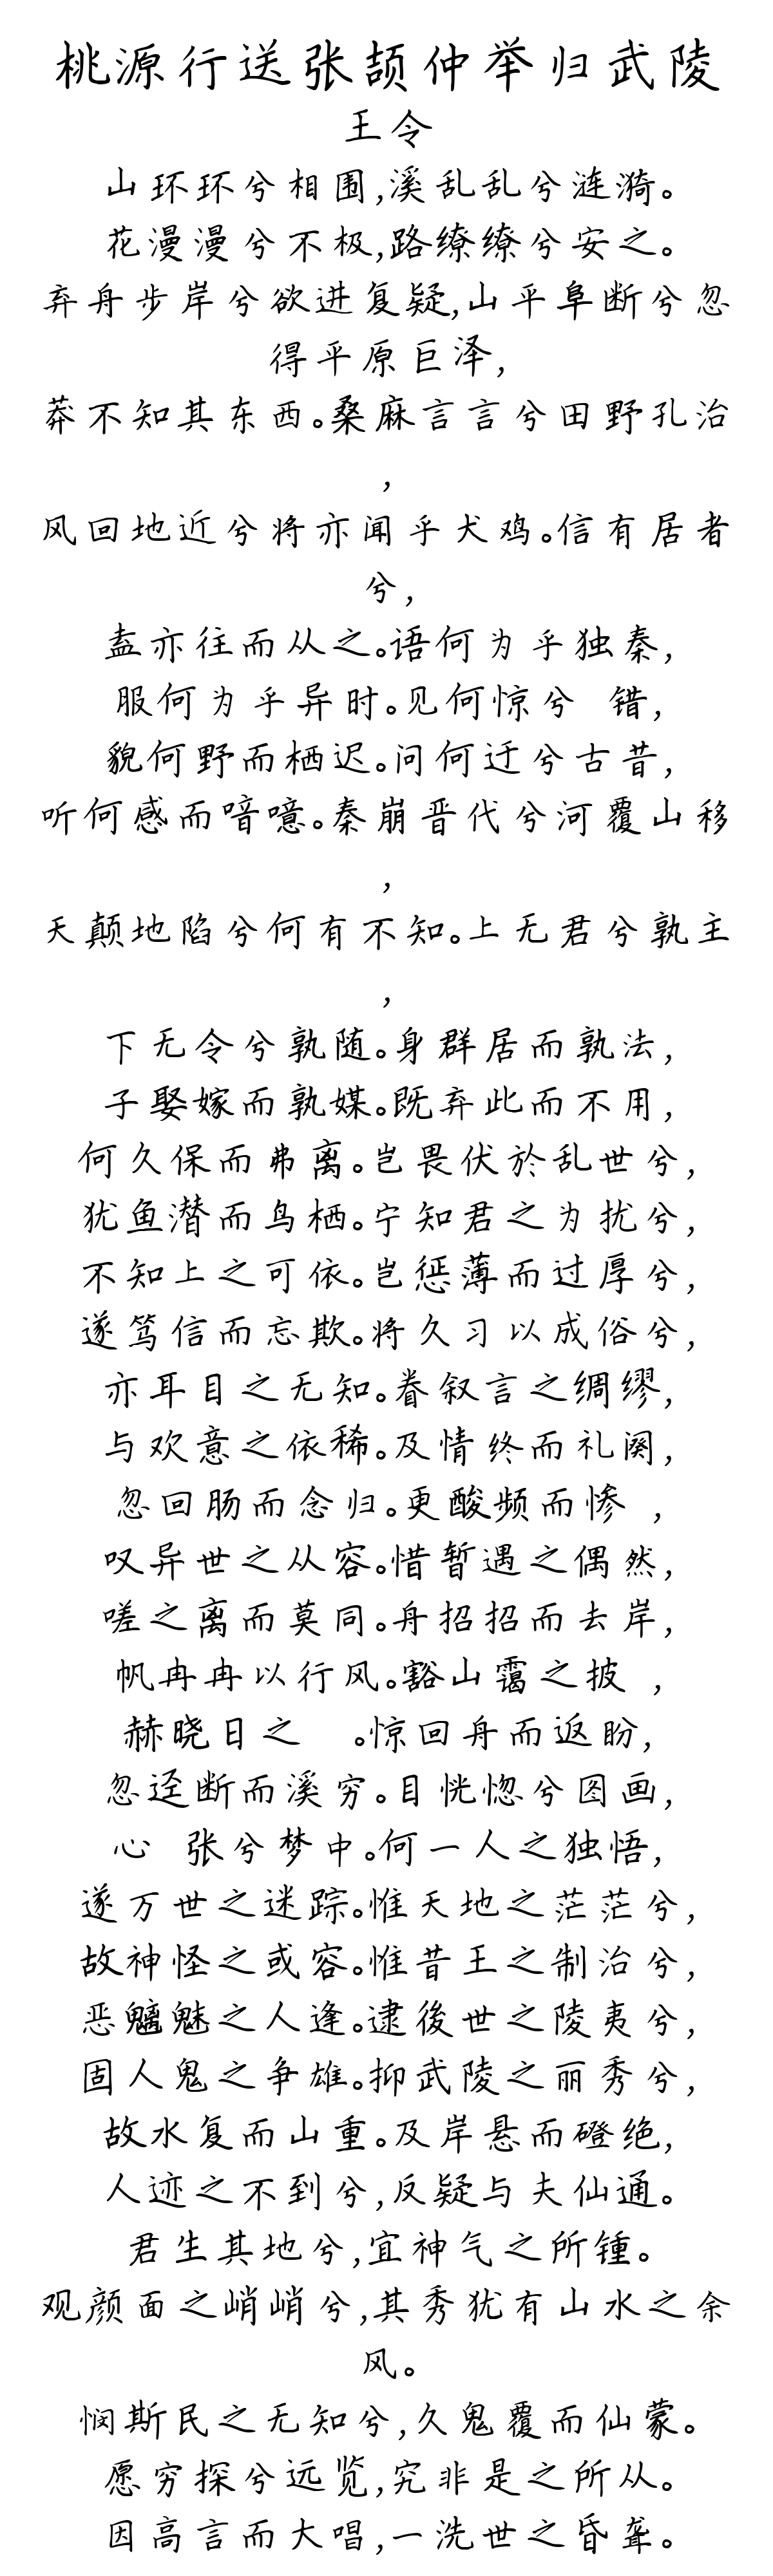 桃源行送张颉仲举归武陵
王令
山环环兮相围,溪乱乱兮涟漪。
花漫漫兮不极,路缭缭兮安之。
弃舟步岸兮欲进复疑,山平阜断兮忽
得平原巨泽,
莽不知其东西。桑麻言言兮田野孔治
,
风回地近兮将亦闻乎犬鸡。信有居者
兮,
盍亦往而从之。语何为乎独秦,
服何为乎异时。见何惊兮 错,
貌何野而栖迟。问何迂兮古昔,
听何感而喑噫。秦崩晋代兮河覆山移
,
天颠地陷兮何有不知。上无君兮孰主
,
下无令兮孰随。身群居而孰法,
子娶嫁而孰媒。既弃此而不用,
何久保而弗离。岂畏伏於乱世兮,
犹鱼潜而鸟栖。宁知君之为扰兮,
不知上之可依。岂惩薄而过厚兮,
遂笃信而忘欺。将久习以成俗兮,
亦耳目之无知。眷叙言之绸缪,
与欢意之依稀。及情终而礼阕,
忽回肠而念归。更酸频而惨 ,
叹异世之从容。惜暂遇之偶然,
嗟之离而莫同。舟招招而去岸,
帆冉冉以行风。豁山霭之披 ,
赫晓日之 。惊回舟而返盼,
忽迳断而溪穷。目恍惚兮图画,
心 张兮梦中。何一人之独悟,
遂万世之迷踪。惟天地之茫茫兮,
故神怪之或容。惟昔王之制治兮,
恶魑魅之人逢。逮後世之陵夷兮,
固人鬼之争雄。抑武陵之丽秀兮,
故水复而山重。及岸悬而磴绝,
人迹之不到兮,反疑与夫仙通。
君生其地兮,宜神气之所锺。
观颜面之峭峭兮,其秀犹有山水之余
风。
悯斯民之无知兮,久鬼覆而仙蒙。
愿穷探兮远览,究非是之所从。
因高言而大唱,一洗世之昏聋。